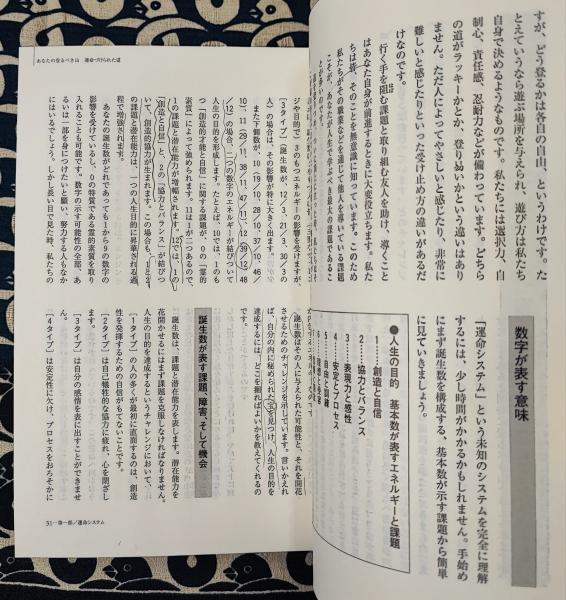 すが、どう登るかは各自の自由、というわけです。た
とえていうなら遊ぶ場所を与えられ、遊び方は私たち
自身で決めるようなものです。私たちには選択力、自
制心、責任感、忍耐力などが備わっています。どちら
の道がラッキーかとか、登り易いかという違いはあり
ません。ただ人によってやさしいと感じたり、非常に
難しいと感じたりといった受け止め方の違いがあるだ
けなのです。
行く手を阻む課題と取り組む友人を助け、導くこと
はあなた自身が前進するときに大変役立ちます。私た
ちは皆、そのことを無意識に知っています。このため
私たちがその職業などを通じて他人を導いている課題
こそが、あなたが人生で学ぶべき最大の課題であるこ
数字が表す意味
「運命システム」という未知のシステムを完全に理解
するには、少し時間がかかるかもしれません。手始め
にまず誕生数を構成する、基本数が示す課題から簡単
に見ていきましょう。
●人生の目的 基本数が表すエネルギーと課題
1……創造と自信
2……協力とバランス
3……表現力と感性
4……安定とプロセス
5……自由と訓練
あなたの登るべき山 運命づけられた道
ジや目的で3のもつエネルギーの影響を受けますが、
【3タイプ】(誕生数が、12/3、21/3、30/3の
人)の場合は、その影響が特に大きく出ます。
また丁個数が、10(19/10、28/10、37/10、46/
10)、11(29/11、38/11、47/11)、12(39/12、48
/12)の場合、二つの数字のエネルギーが結びついて
人生の目的を形成します。たとえば、10では、1のも
つ「創造的才能と自信」に関する課題が、0の「霊的
素質」によって強められます。11は1が二つあるので、
1の課題と潜在能力が増幅されます。12では、1の
「創造と自信」と、2の「協力とバランス」が結びつ
いて、創造的協力が生まれます。この場合も、1と2
の課題と潜在能力は、一つの人生目的に昇華される過
程で増強されます。
あなたの誕生数がどれであっても1から9の数字の
影響を受けているし、0の特質である霊的素質を取り
入れることも可能です。数字の示す可能性の全部、あ
るいは一部を身につけたいと願い、努力する人もなか
にはいるでしょう。しかし長い目で見た時、私たちの
誕生数はその人に与えられた可能性と、それを開花
させるためのチャレンジを示しています。言いかえれ
ば、自分の内に秘められた宝を見つけ、人生の目的を
達成するには、どこを掘ればよいかを教えてくれるの
です。
誕生数が表す課題、障害、そして機会
誕生数は、課題と潜在能力を表します。潜在能力を
花開かせるにはまず課題を克服しなければなりません。
人生の目的を達成するというチャレンジにおいて、
【1タイプ】の人の多くが最初に直面するのは、創造
性を発揮するための自信がもてないことです。
【2タイプ】は自己犠牲的な協力に疲れ、心を閉ざし
ます。
【3タイプ】は自分の感情を表に出すことができませ
ん。
【4タイプ】は安定性に欠け、プロセスをおろそかに
31…第一部/運命システム